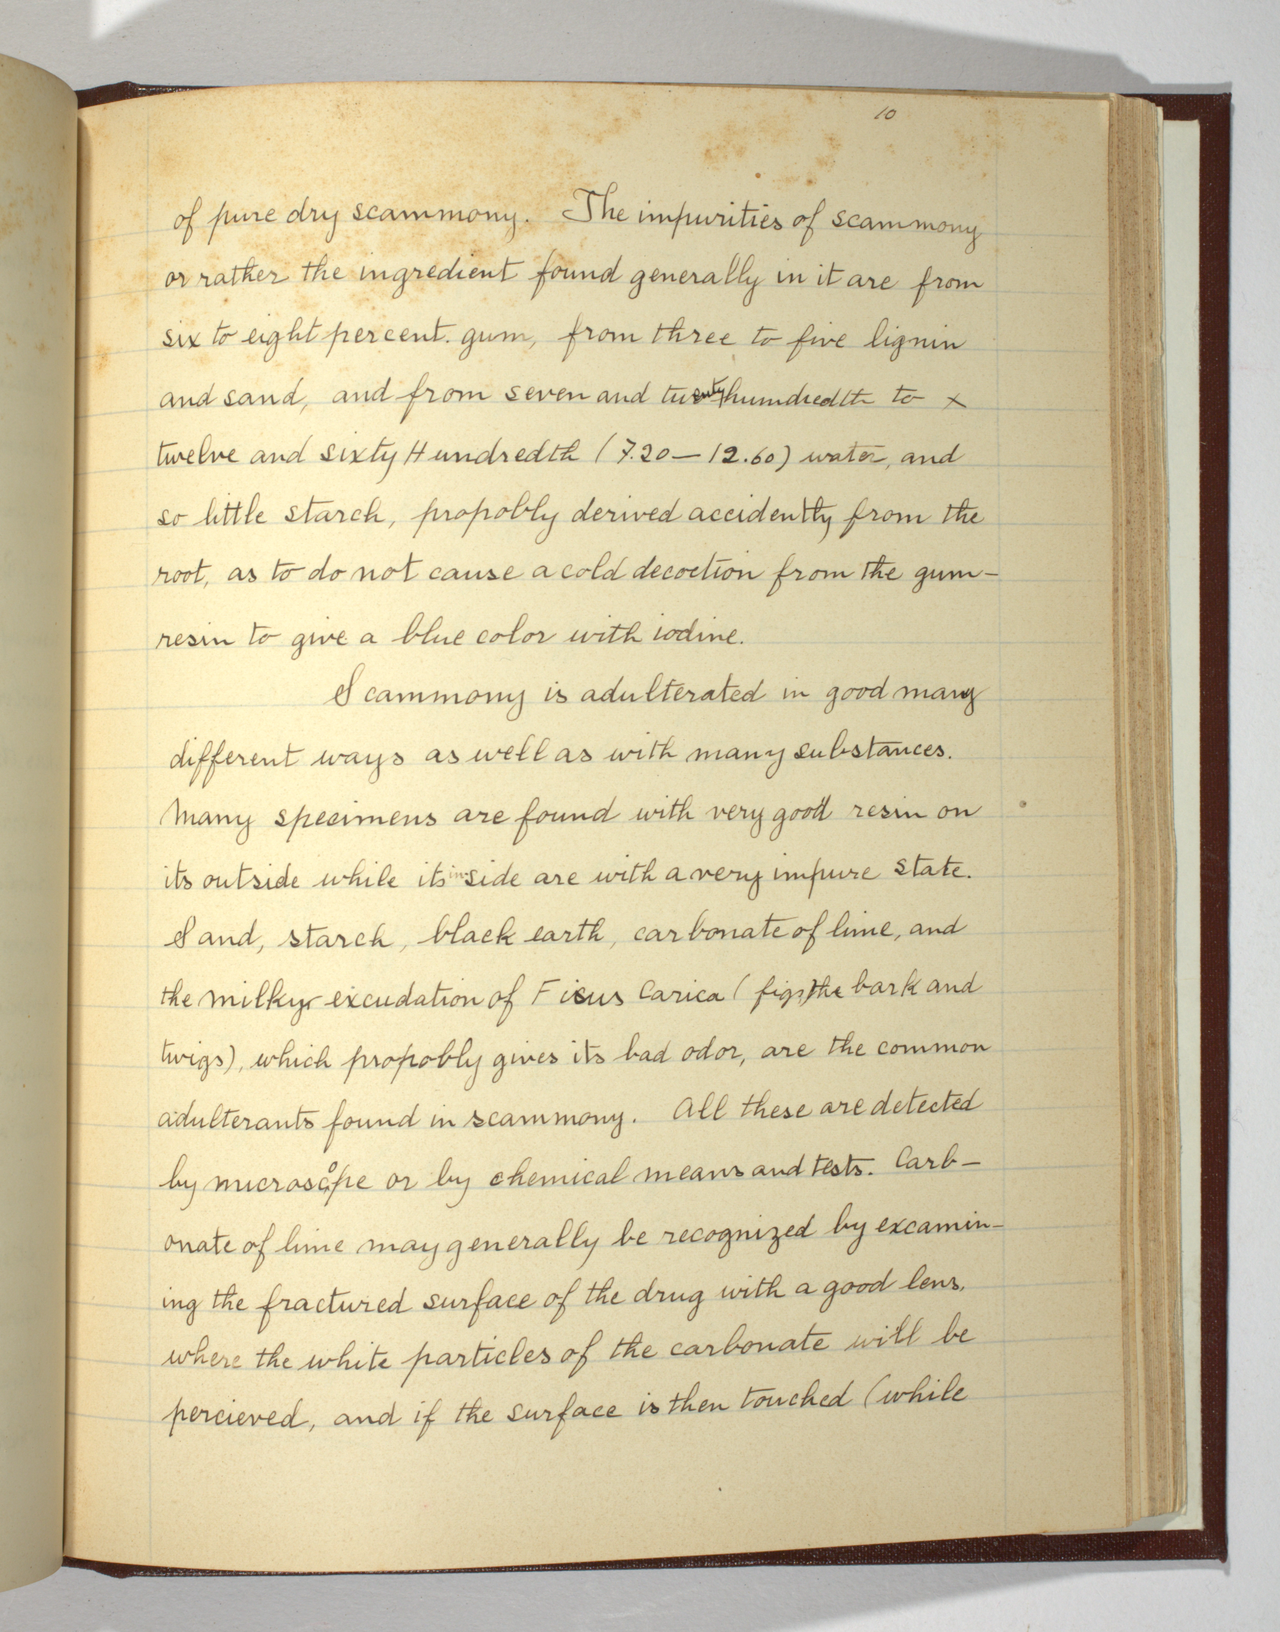 10
of pure dry scammony. The impurities of scammony
or rather the ingredient found generally in it are from
six to eight percent. gum, from three to five lignin
and sand, and from seven and twenty humdredth to x
twelve and sixty Hundredth (7.20—12.60) water, and
so little starch, propobly derived accidently from the
root, as to do not cause a cold decoction from the gum-
resin to give a blue color with iodine.
Scammony is adulterated in good many
different ways as well as with many substances.
Many specimens are found with very good resin on
its outside while its inside are with a very impure state.
Sand, starch, black earth, carbonate of lime, and
the milky excudation of Ficus Carica (figs, the bark and
twigs), which propobly gives its bad odor, are the common
adulterants found in scammony. All these are detected
by microscope or by chemical means and tests. Carb-
onate of lime may generally be recognized by excamin-
ing the fractured surface of the drug with a good lens,
where the white particles of the carbonate will be
percieved, and if the surface is then touched (while